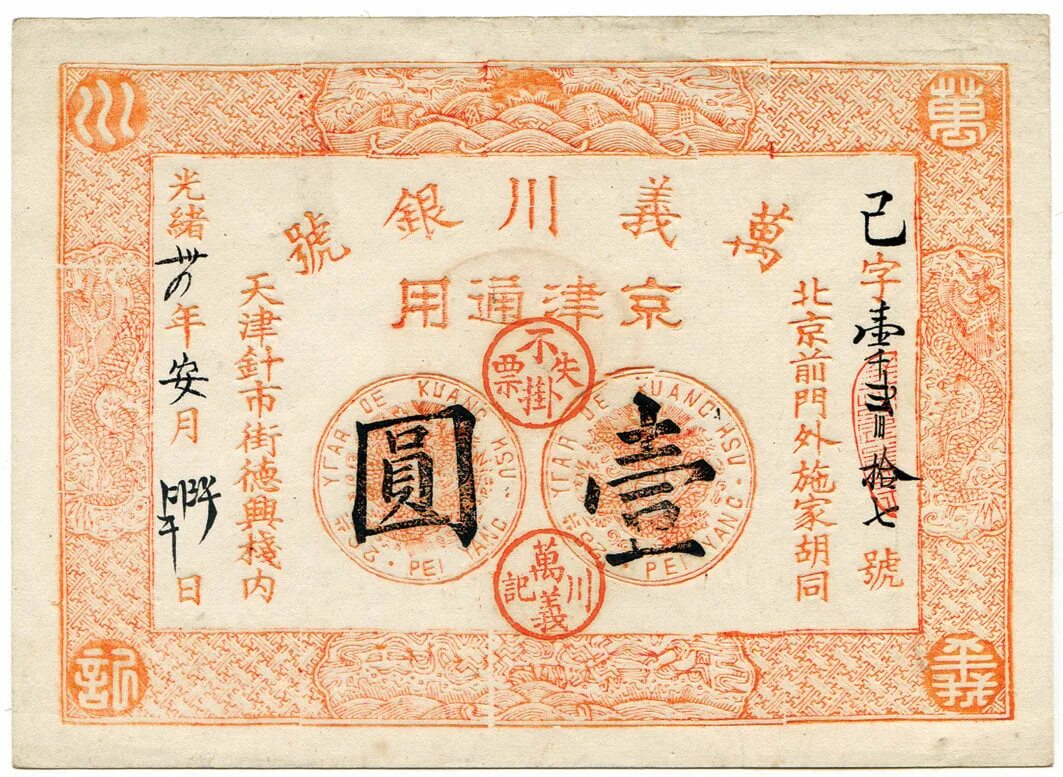 萬
義
川
記
萬義川銀號
京津通用
己字壹千弍百拾七號
北京前門外施家胡同
失票不掛
壹圓
YEAR OF KUANG HSU
PEI YANG
YEAR OF KUANG HSU
PEI YANG
萬義川記
天津針市街德興棧内
光緒年安月日